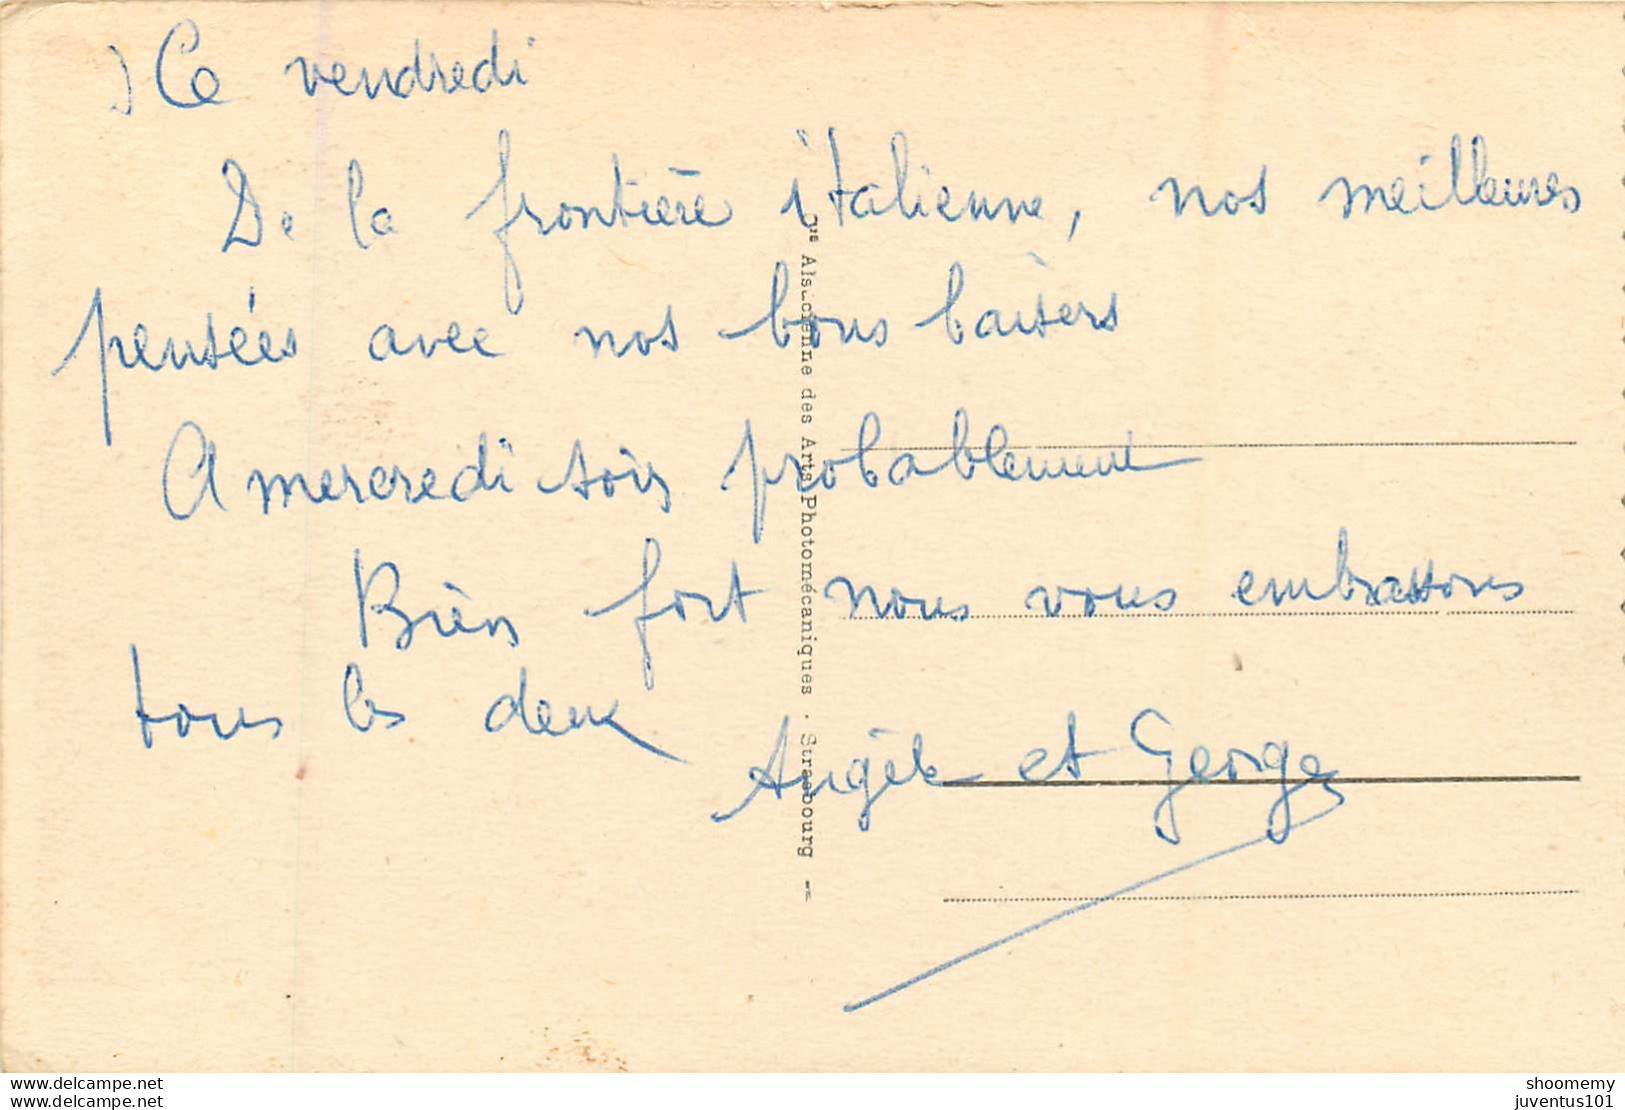 Ce vendredi
De la frontière italienne, nos meilleures
pensées avec nos bons baisers
A mercredi soir probablement
Bien fort nous vous embrassons
tous les deux
Angèle et Georges
Cie Alsacienne des Arts Photomécaniques · Strasbourg
delcampe.net
delcampe.net
shoomemy
juventus101